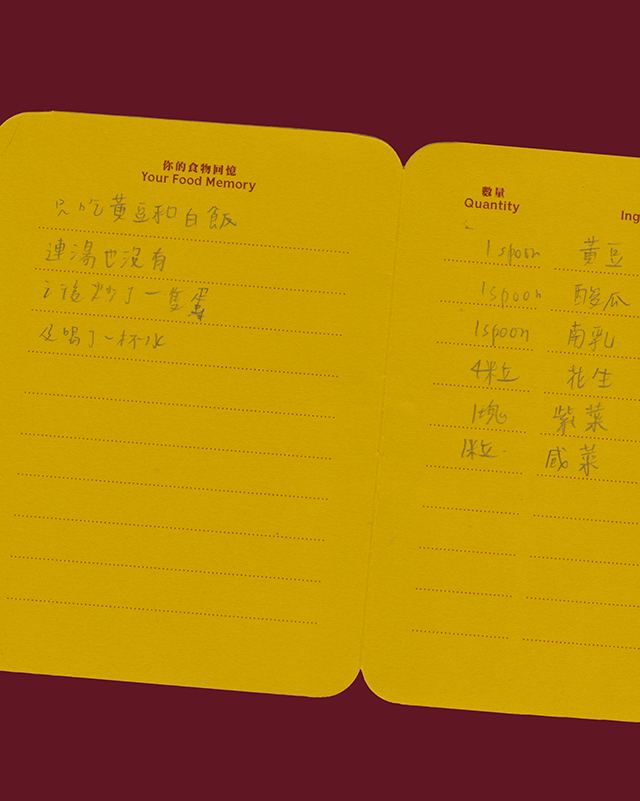 你的食物回憶
Your Food Memory
只吃黃豆和白飯
連湯也沒有
後炒了一隻蛋
及喝了一杯水
數量
Quantity
Ing
1 spoon 黃豆
1 spoon 酸瓜
1 spoon 南乳
4粒 花生
1塊 紫菜
1粒 咸菜